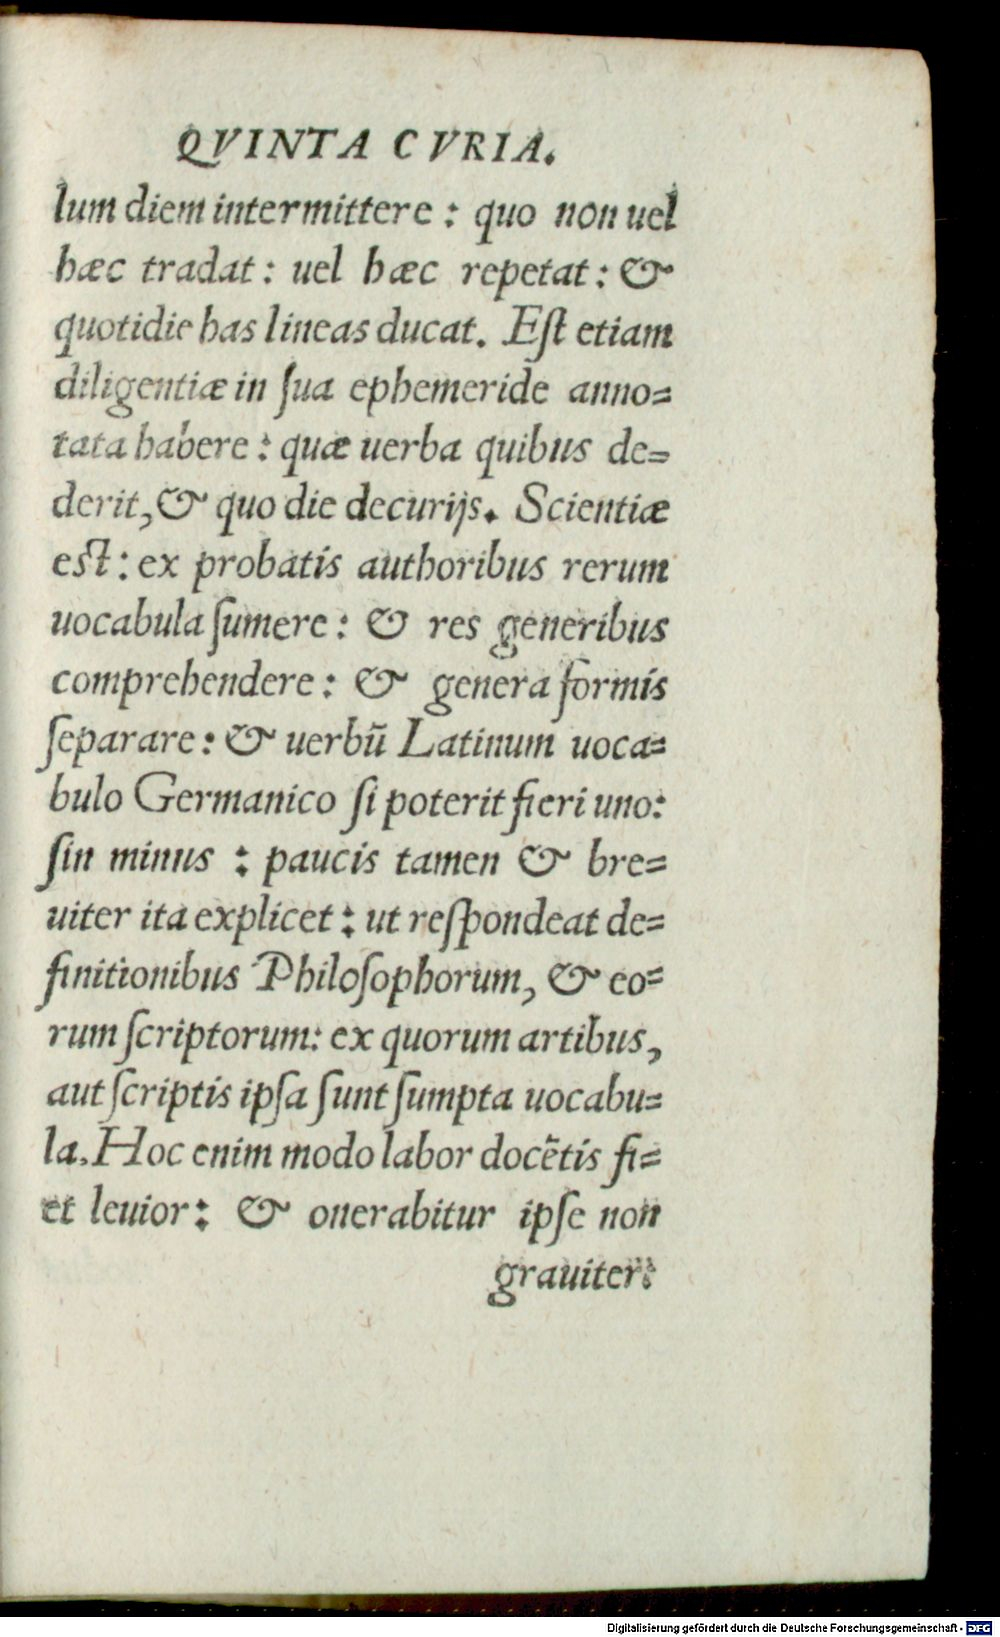 QVINTA CVRIA.
lum diem intermittere : quo non uel
hæc tradat : uel hæc repetat : &
quotidie has lineas ducat. Eſt etiam
diligentiæ in ſua ephemeride anno=
tata habere : quæ uerba quibus de=
derit, & quo die decurijs. Scientiæ
eſt : ex probatis authoribus rerum
uocabula ſumere : & res generibus
comprehendere : & genera formis
ſeparare : & uerbū Latinum uoca=
bulo Germanico ſi poterit fieri uno:
ſin minus : paucis tamen & bre=
uiter ita explicet : ut reſpondeat de=
finitionibus Philoſophorum, & eo=
rum ſcriptorum: ex quorum artibus,
aut ſcriptis ipſa ſunt ſumpta uocabu=
la. Hoc enim modo labor docētis fi=
et leuior : & onerabitur ipſe non
grauiter:
Digitalisierung gefördert durch die Deutsche Forschungsgemeinschaft - DFG